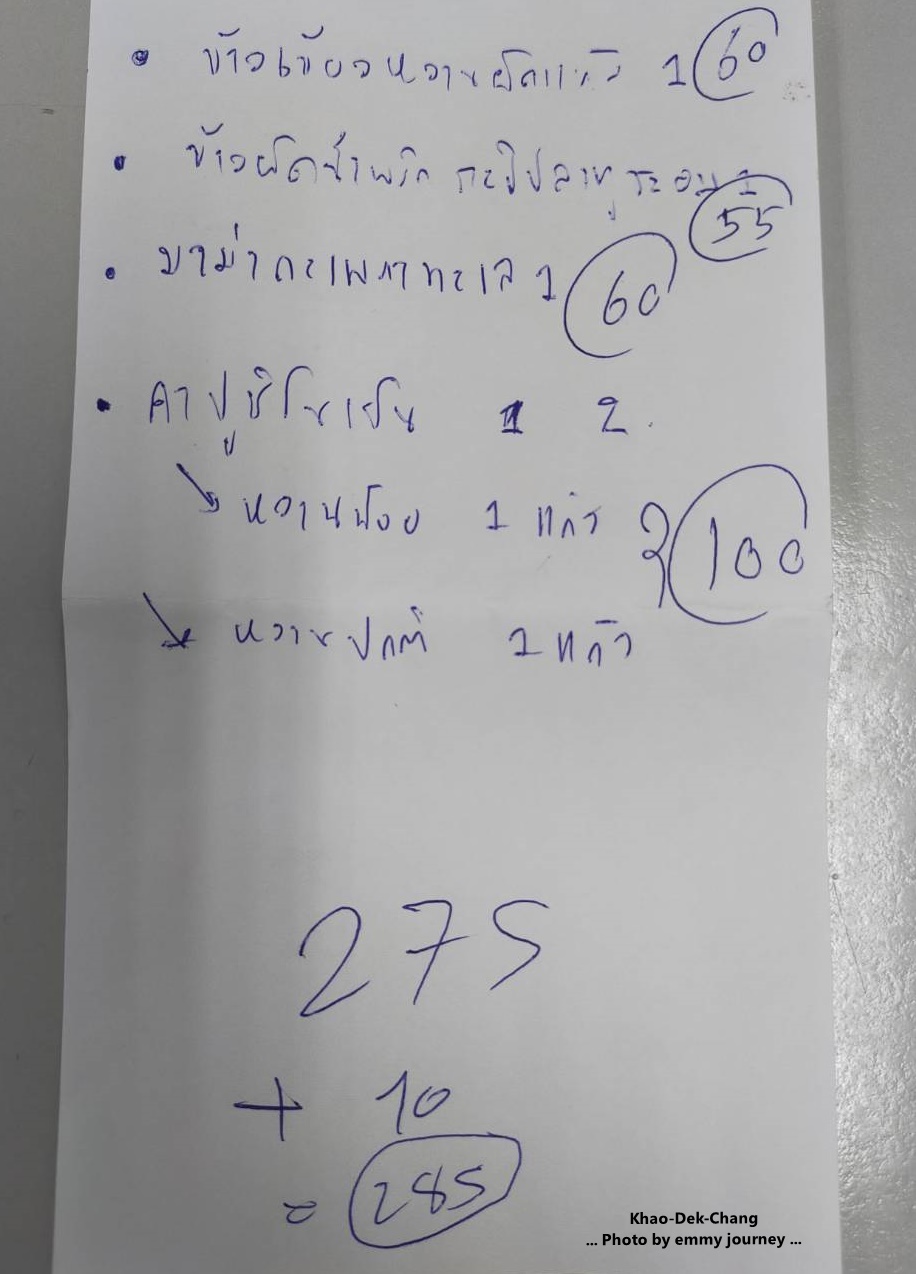 • ข้าวเขียวหวานผัดแห้ง 1 60
• ข้าวผัดน้ำพริกกะปิปลาทูชะอม 1 55
• มาม่ากะเพราทะเล 1 60
• คาปูชิโนเย็น 2
หวานน้อย 1 แก้ว
100
หวานปกติ 1 แก้ว
275
+ 10
= 285
Khao-Dek-Chang
... Photo by emmy journey ...